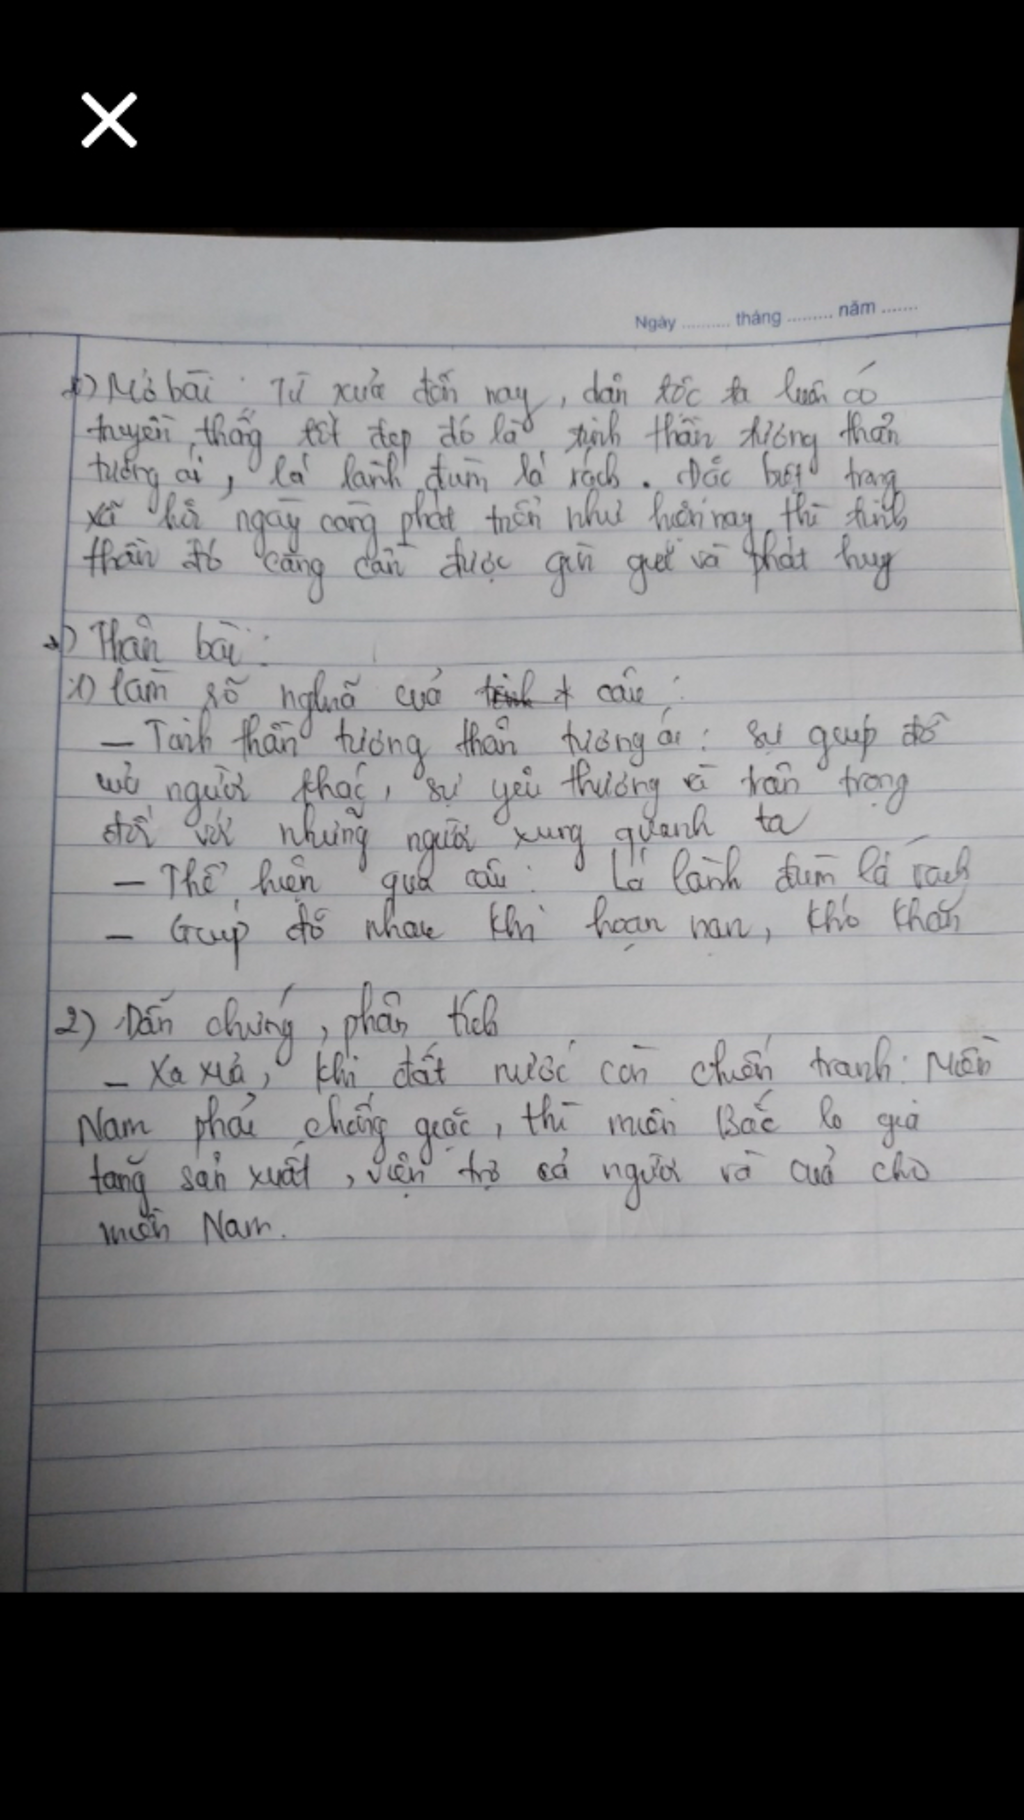 Ngày .......... tháng ......... năm .......
1) Mở bài : Từ xưa đến nay, dân tộc ta luôn có
truyền thống tốt đẹp đó là tinh thần tương thân
tương ái, lá lành đùm lá rách. Đặc biệt trong
xã hội ngày càng phát triển như hiện nay thì tinh
thần đó càng cần được gìn giữ và phát huy
2) Thân bài :
1) Làm rõ nghĩa của câu :
– Tinh thần tương thân tương ái : sự giúp đỡ
người khác, sự yêu thương và trân trọng
đối với những người xung quanh ta
– Thể hiện qua câu : Lá lành đùm lá rách
– Giúp đỡ nhau khi hoạn nạn, khó khăn
2) Dẫn chứng, phân tích
– Xa xưa, khi đất nước còn chiến tranh : Miền
Nam phải chống giặc, thì miền Bắc lo gia
tăng sản xuất, viện trợ cả người và của cho
miền Nam.